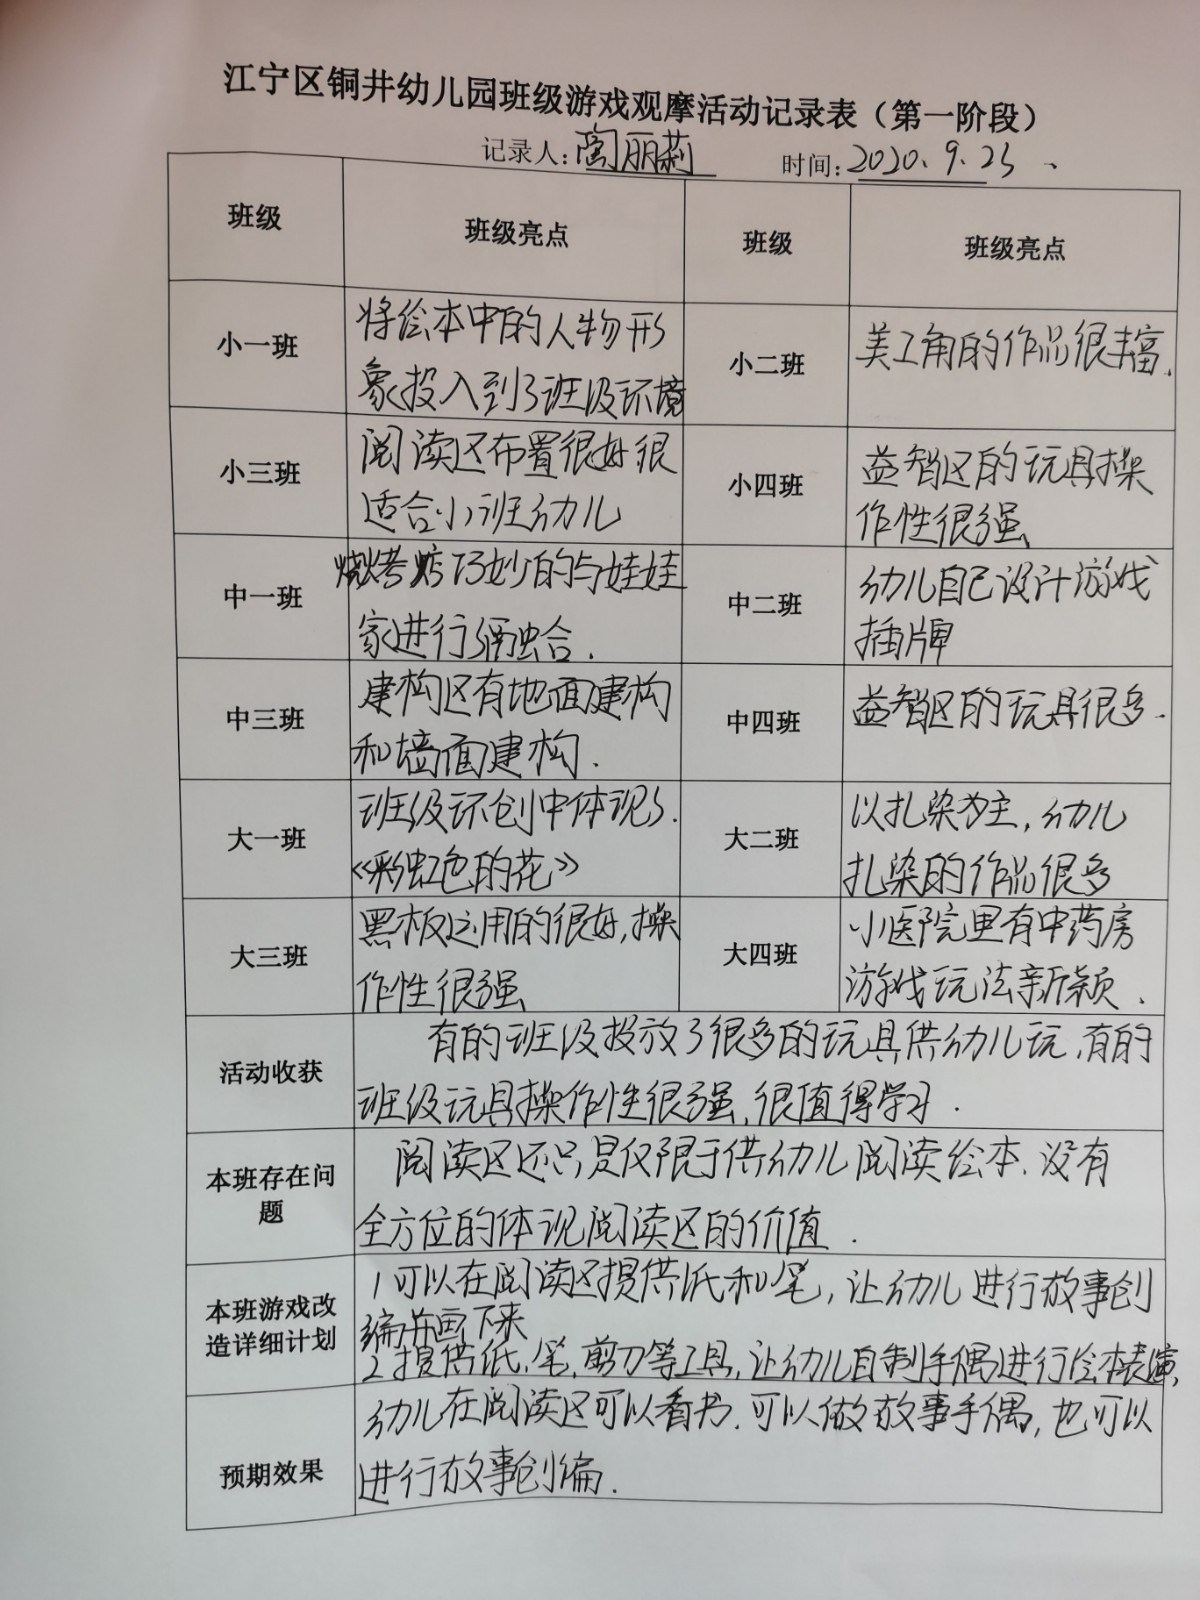 江宁区铜井幼儿园班级游戏观摩活动记录表（第一阶段）
记录人：陶丽莉 时间：2020.9.23.
班级 班级亮点 班级 班级亮点
小一班
将绘本中的人物形
象投入到了班级环境
小二班
美工角的作品很丰富.
小三班
阅读区布置很好很
适合小班幼儿
小四班
益智区的玩具操
作性很强
中一班
烧烤炉巧妙的与娃娃
家进行了融合.
中二班
幼儿自己设计游戏
插牌
中三班
建构区有地面建构
和墙面建构.
中四班
益智区的玩具很多.
大一班
班级环创中体现了.
《彩虹色的花》
大二班
以扎染为主,幼儿
扎染的作品很多
大三班
黑板运用的很好,操
作性很强
大四班
小医院里有中药房
游戏玩法新颖.
活动收获
有的班级投放了很多的玩具供幼儿玩,有的
班级玩具操作性很强,很值得学习.
本班存在问
题
阅读区还只是仅限于供幼儿阅读绘本.没有
全方位的体现阅读区的价值.
本班游戏改
造详细计划
1可以在阅读区提供纸和笔,让幼儿进行故事创
编并画下来
2.提供纸.笔.剪刀等工具,让幼儿自制手偶进行绘本表演
预期效果
幼儿在阅读区可以看书.可以做故事手偶,也可以
进行故事创编.